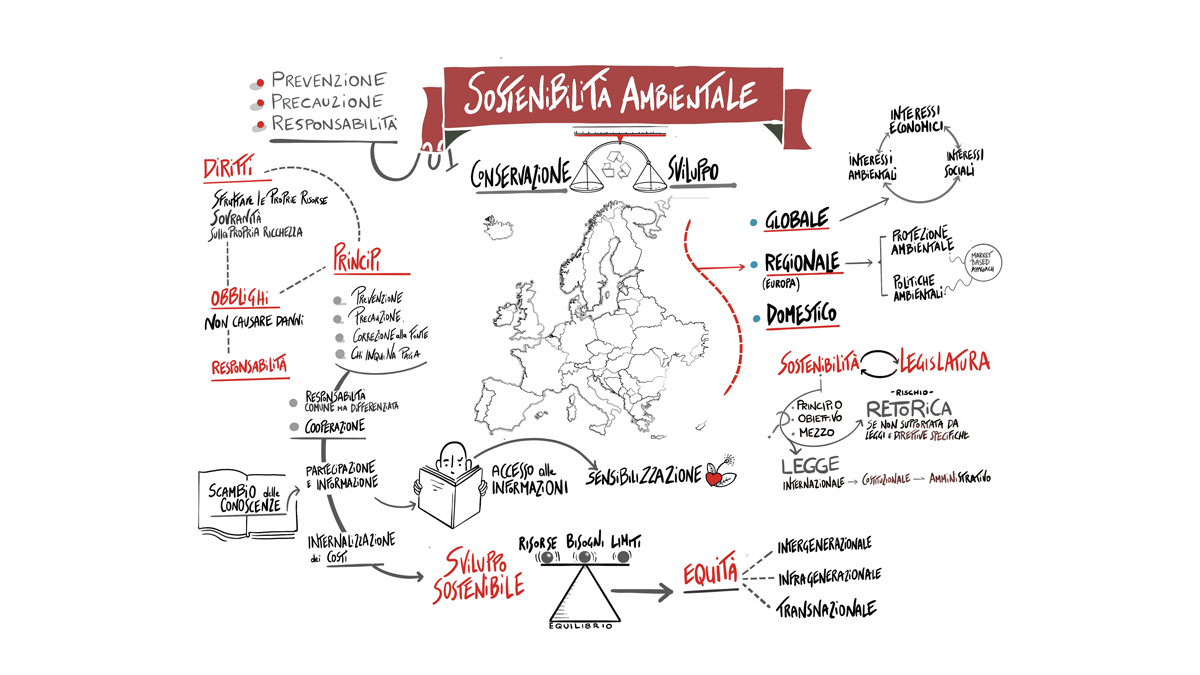 SOSTENIBILITÀ AMBIENTALE
PREVENZIONE
PRECAUZIONE
RESPONSABILITÀ
CONSERVAZIONE
SVILUPPO
DIRITTI
SFRUTTARE LE PROPRIE RISORSE
SOVRANITÀ
SULLA PROPRIA RICCHEZZA
OBBLIGHI
NON CAUSARE DANNI
RESPONSABILITÀ
PRINCIPI
PREVENZIONE
PRECAUZIONE.
CORREZIONE alla FONTE
CHI INQUINA PAGA
RESPONSABILITÀ
COMUNE MA DIFFERENZIATA
COOPERAZIONE
PARTECIPAZIONE
E INFORMAZIONE
SCAMBIO delle
CONOSCENZE
INTERNALIZZAZIONE
dei COSTI
ACCESSO alle
INFORMAZIONI
SENSIBILIZZAZIONE
SVILUPPO
SOSTENIBILE
RISORSE BISOGNI LIMITI
EQUILIBRIO
EQUITÀ
INTERGENERAZIONALE
INFRAGENERAZIONALE
TRANSNAZIONALE
GLOBALE
REGIONALE
(EUROPA)
DOMESTICO
INTERESSI
ECONOMICI
INTERESSI
AMBIENTALI
INTERESSI
SOCIALI
PROTEZIONE
AMBIENTALE
POLITICHE
AMBIENTALI
MARKET
BASED
APPROACH
SOSTENIBILITÀ
LEGISLATURA
PRINCIPIO
OBIETTIVO
MEZZO
-RISCHIO-
RETORICA
SE NON SUPPORTATA DA
LEGGI E DIRETTIVE SPECIFICHE
LEGGE
INTERNAZIONALE → COSTITUZIONALE → AMMINISTRATIVO